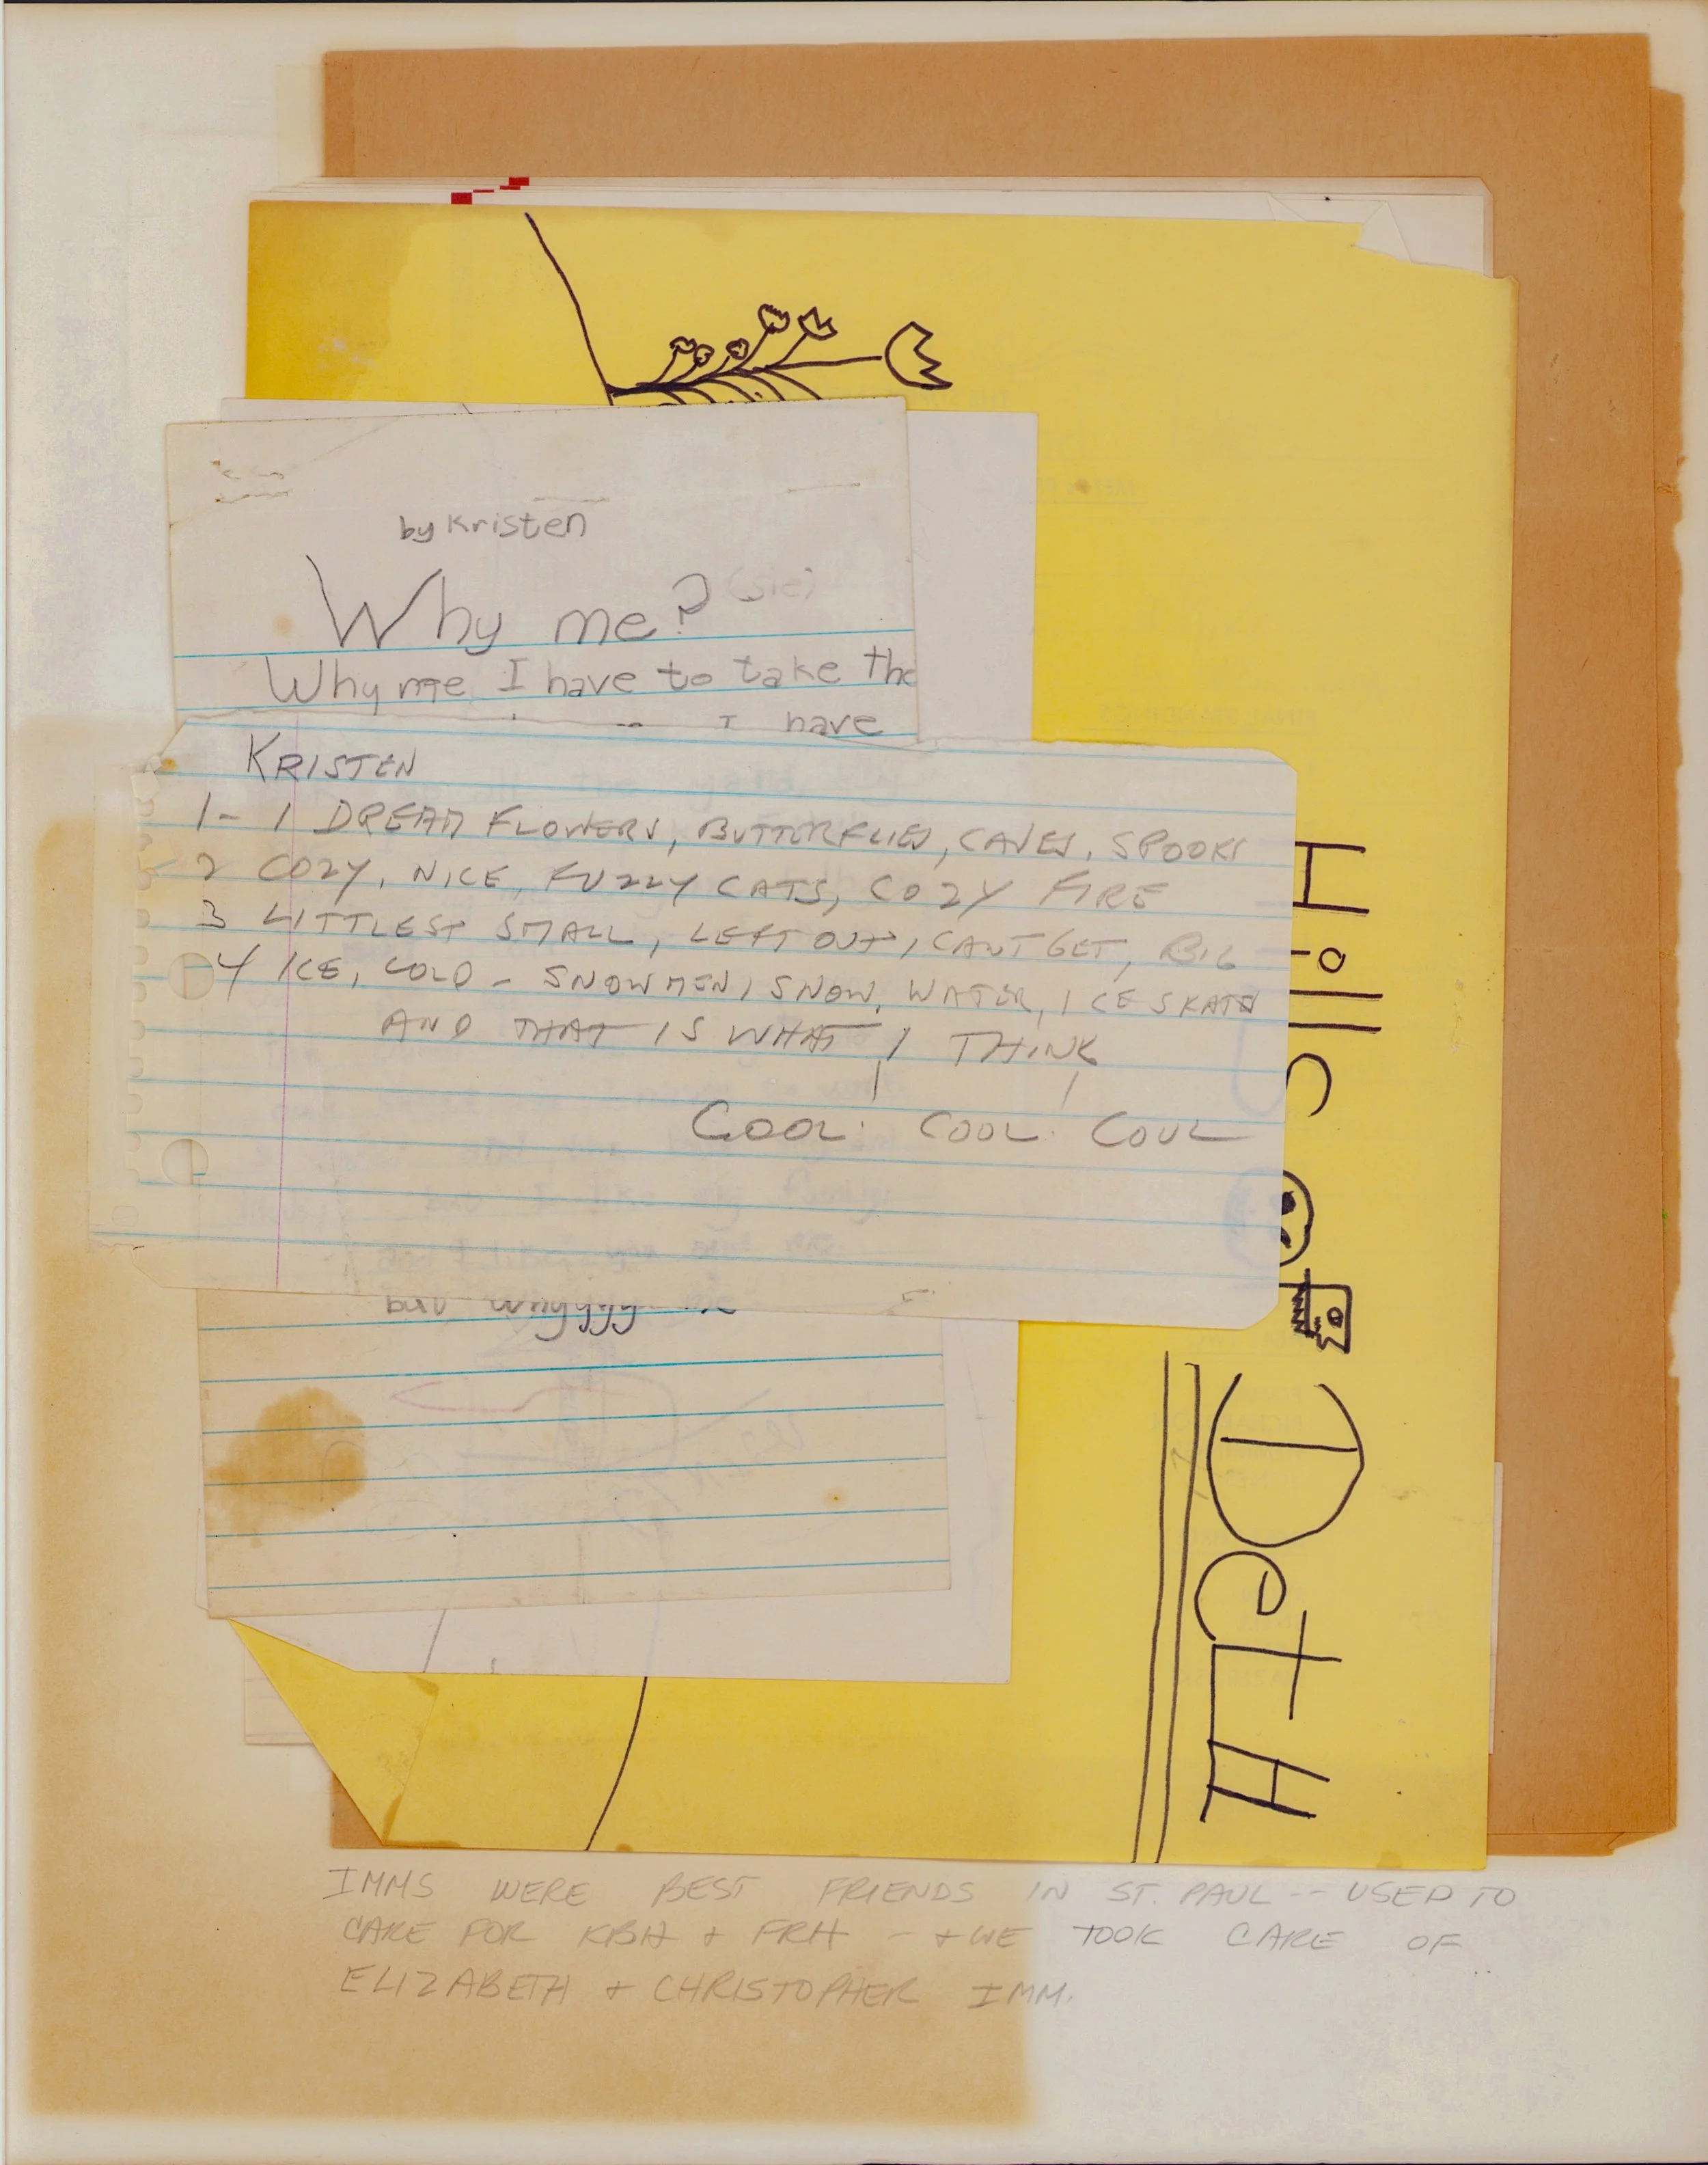 by Kristen
Why me? (sic)
Why me I have to take the
I have
KRISTEN
1- 1 DREAM FLOWERS, BUTTERFLIES, CAVES, SPOOKS
2 COZY, NICE, FUZZY CATS, COZY FIRE
3 LITTLEST SMALL, LEFT OUT, CANT GET, BIG
4 ICE, COLD - SNOWMEN, SNOW, WATER, ICE SKATE
AND THAT IS WHAT I THINK
COOL. COOL. COOL
but whyyyy me
DeTH
IMMS WERE BEST FRIENDS IN ST. PAUL -- USED TO
CARE FOR KBH + FRH - + WE TOOK CARE OF
ELIZABETH + CHRISTOPHER IMM.